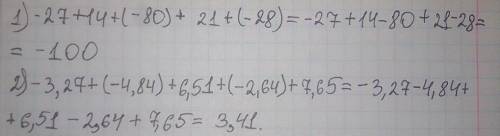 1) -27+14+(-80)+ 21+(-28)=-27+14-80+21-28=
= -100
2)-3,27+(-4,84)+6,51+(-2,64)+7,65=-3,27-4,84+
+6,51-2,64+7,65= 3,41.